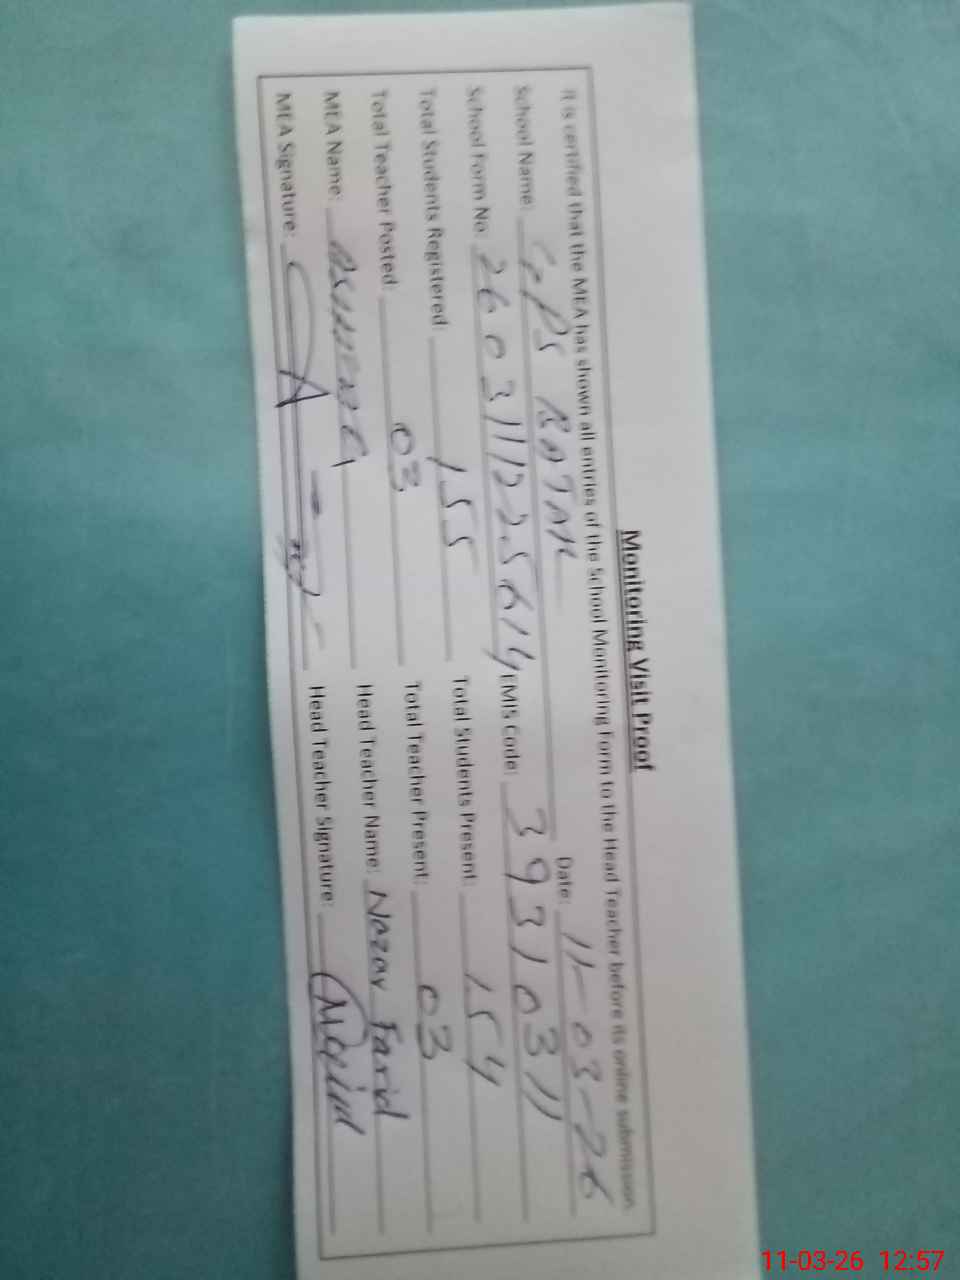 Monitoring Visit Proof
It is certified that the MEA has shown all entries of the School Monitoring Form to the Head Teacher before its online submission
School Name: GPS RATAR Date: 11-03-26
School Form No: 26031112225614 EMIS Code: 39310311
Total Students Registered: 155 Total Students Present: 154
Total Teacher Posted: 03 Total Teacher Present: 03
MEA Name: Head Teacher Name: Nazar Farid
MEA Signature: Head Teacher Signature:
11-03-26 12:57